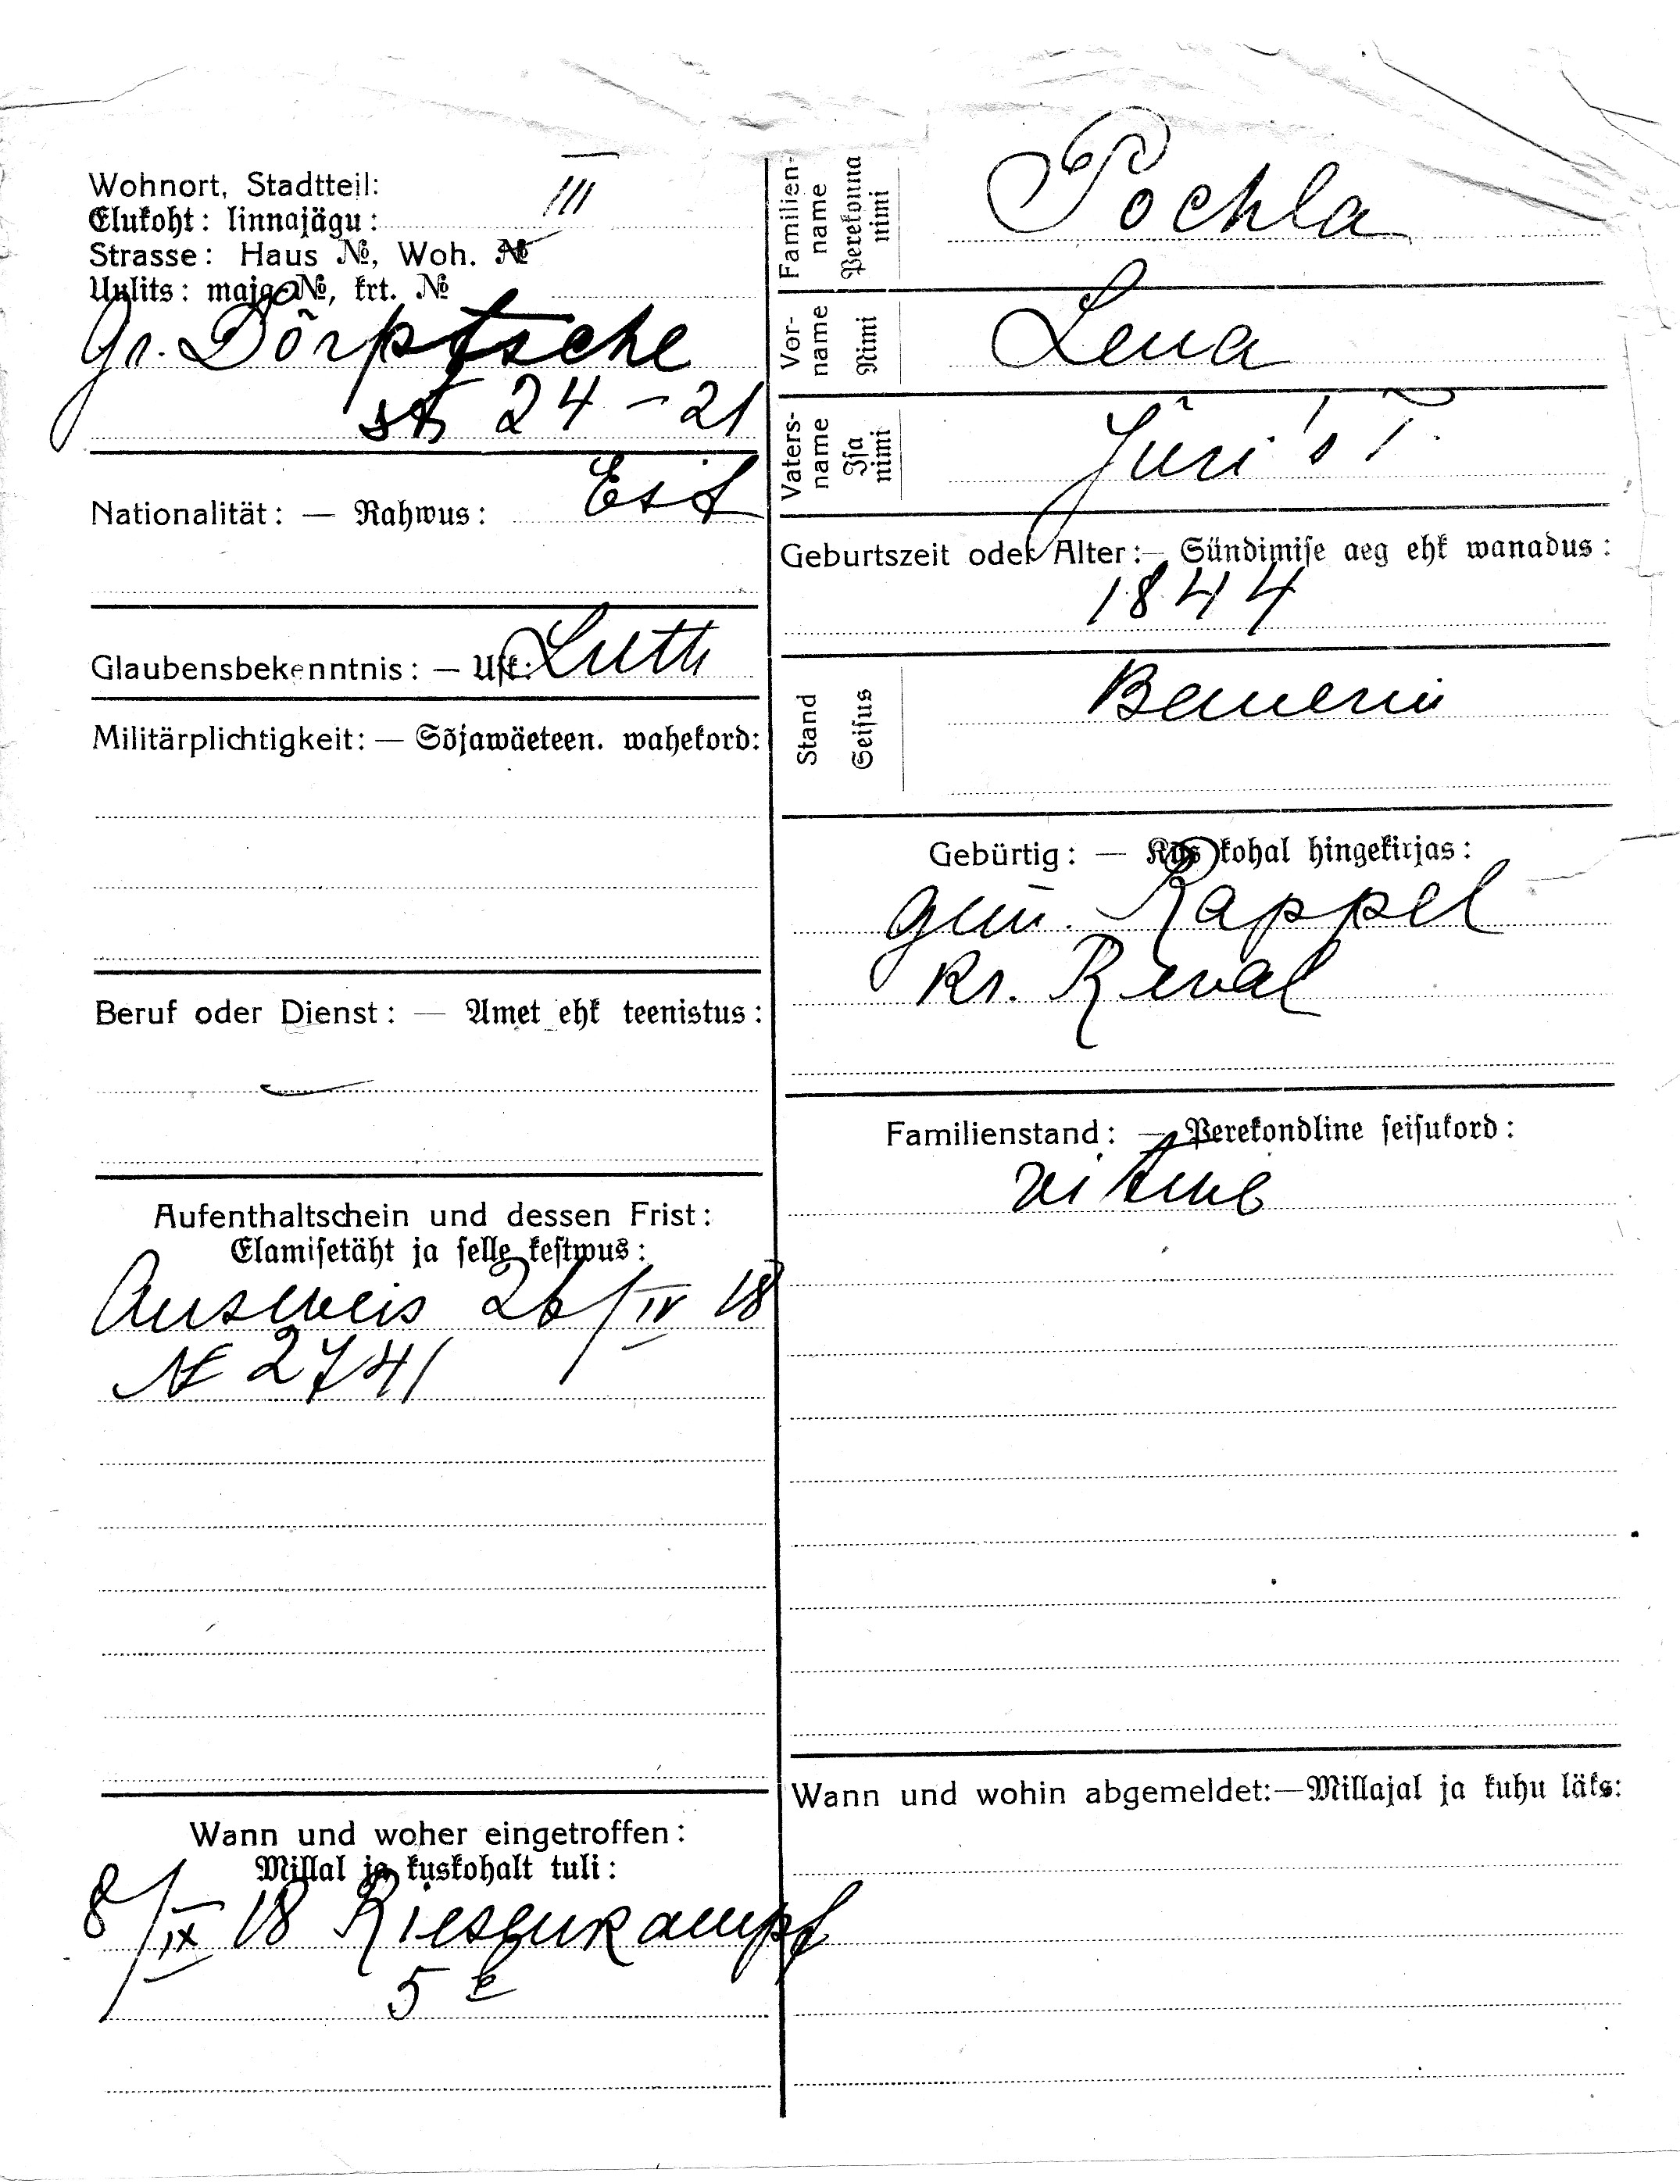 Wohnort, Stadtteil:
III
Elukoht: linnajägu:
Strasse: Haus №, Woh. №
Uulits: maja №, krt. №
Gr. Dörptsche
str 24 – 21
Nationalität: — Rahwus:
Est
Glaubensbekenntnis: — Usk:
Luth
Militärplichtigkeit: — Sõjawäeteen. wahekord:
Beruf oder Dienst: — Amet ehk teenistus:
Aufenthaltschein und dessen Frist:
Elamisetäht ja selle kestwus:
Ausweis 26/IV 18
№ 2741
Wann und woher eingetroffen:
Millal ja kuskohalt tuli:
8/IX 18 Riesenkampf
5
Familien-
name
Perekonna
nimi
Pochla
Vor-
name
Nimi
Lena
Vaters-
name
Isa
nimi
Jüri's T.
Geburtszeit oder Alter: — Sündimise aeg ehk wanadus:
1844
Stand
Seisus
Bäuerin
Gebürtig: — Kus kohal hingekirjas:
gem. Rappel
Kr. Reval
Familienstand: — Perekondline seisukord:
Witwe
Wann und wohin abgemeldet: — Millajal ja kuhu läks: